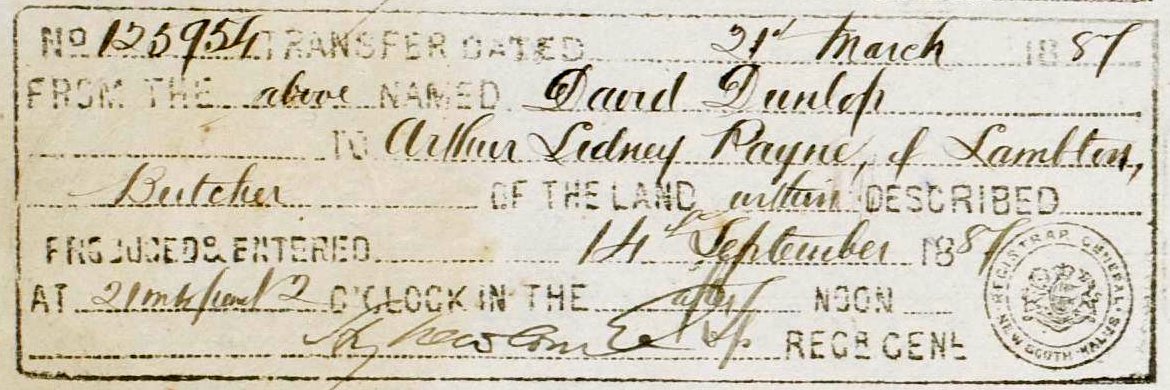 No 125954 TRANSFER DATED 21st March 1887
FROM THE above NAMED David Dunlop
TO Arthur Sidney Payne, of Lambton,
Butcher OF THE LAND within DESCRIBED
PRODUCED & ENTERED 14th September 1887
AT 21 mts past 2 O'CLOCK IN THE after NOON
REGR GENL
REGISTRAR GENERAL NEW SOUTH WALES